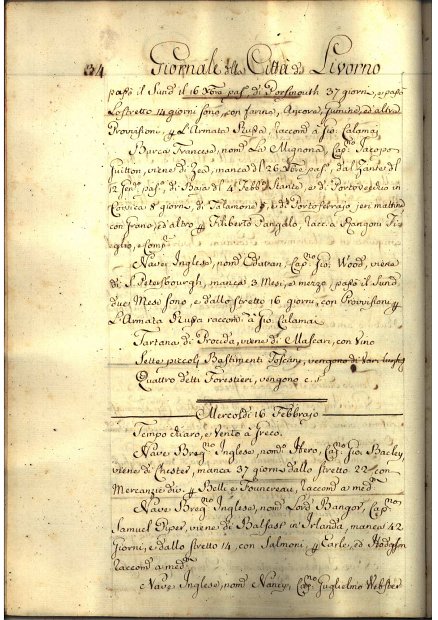 134 Giornale della Città di Livorno
passò il Sund il 16 Xbre pass. di Porsmouth 37 giorni, e passò
Lo stretto 14 giorni sono, con farina, Ancore, Gumine, ed altre
Provisioni, p L'Armata Russa, raccomd a Gio. Calamai
Barca Francese, nomd La Mignona, Capno Jacopo
Guitton, viene di Zea, manca dal 26 Xbre, passd dal Zante il
12 Genro, passd di Baia il 4 Febbro Stante, e di Portovecchio in
Corsica 8 giorni, di Talamone 5, e di Portoferajo jeri mattina
con Grano, ed altro p Filiberto Pangalo, racc. a Rangoni Tis
eglio, e Compi
Nave Inglese, nomd Capno Gio. Wood, viene
di S. Petersbourgh, manca 3 Mesi, e mezzo, passò il Sund
due Mesi sono, e dallo stretto 16 giorni, con Provisioni p
L'Armata Russa raccomd a Gio. Calamai
Tartana di Procida, viene di Mascari, con Vino
Sette piccoli Bastimenti Toscani, vengono di Vari luoghi
Quattro detti Forestieri, vengono c.s.
Mercoldì 16 Febbrajo
Tempo chiaro, e Vento a Greco.
Nave Bregno Inglese, nomo Hero, Capno Gio. Backey,
viene di Chester, manca 37 giorni dallo stretto 22 con
Mercanzie div p Belle e Founereau, raccomd a medi
Nave Bregno Inglese, nomd Lord Bangor, Capno
Samuel Piper, viene di Balfast in Irlanda, manca 42
Giorni, e dallo stretto 14, con Salmoni, p Earle, ed Hodgson
raccomd a medi
Nave Inglese, nomd Nancy, Capno Guglielmo Webster